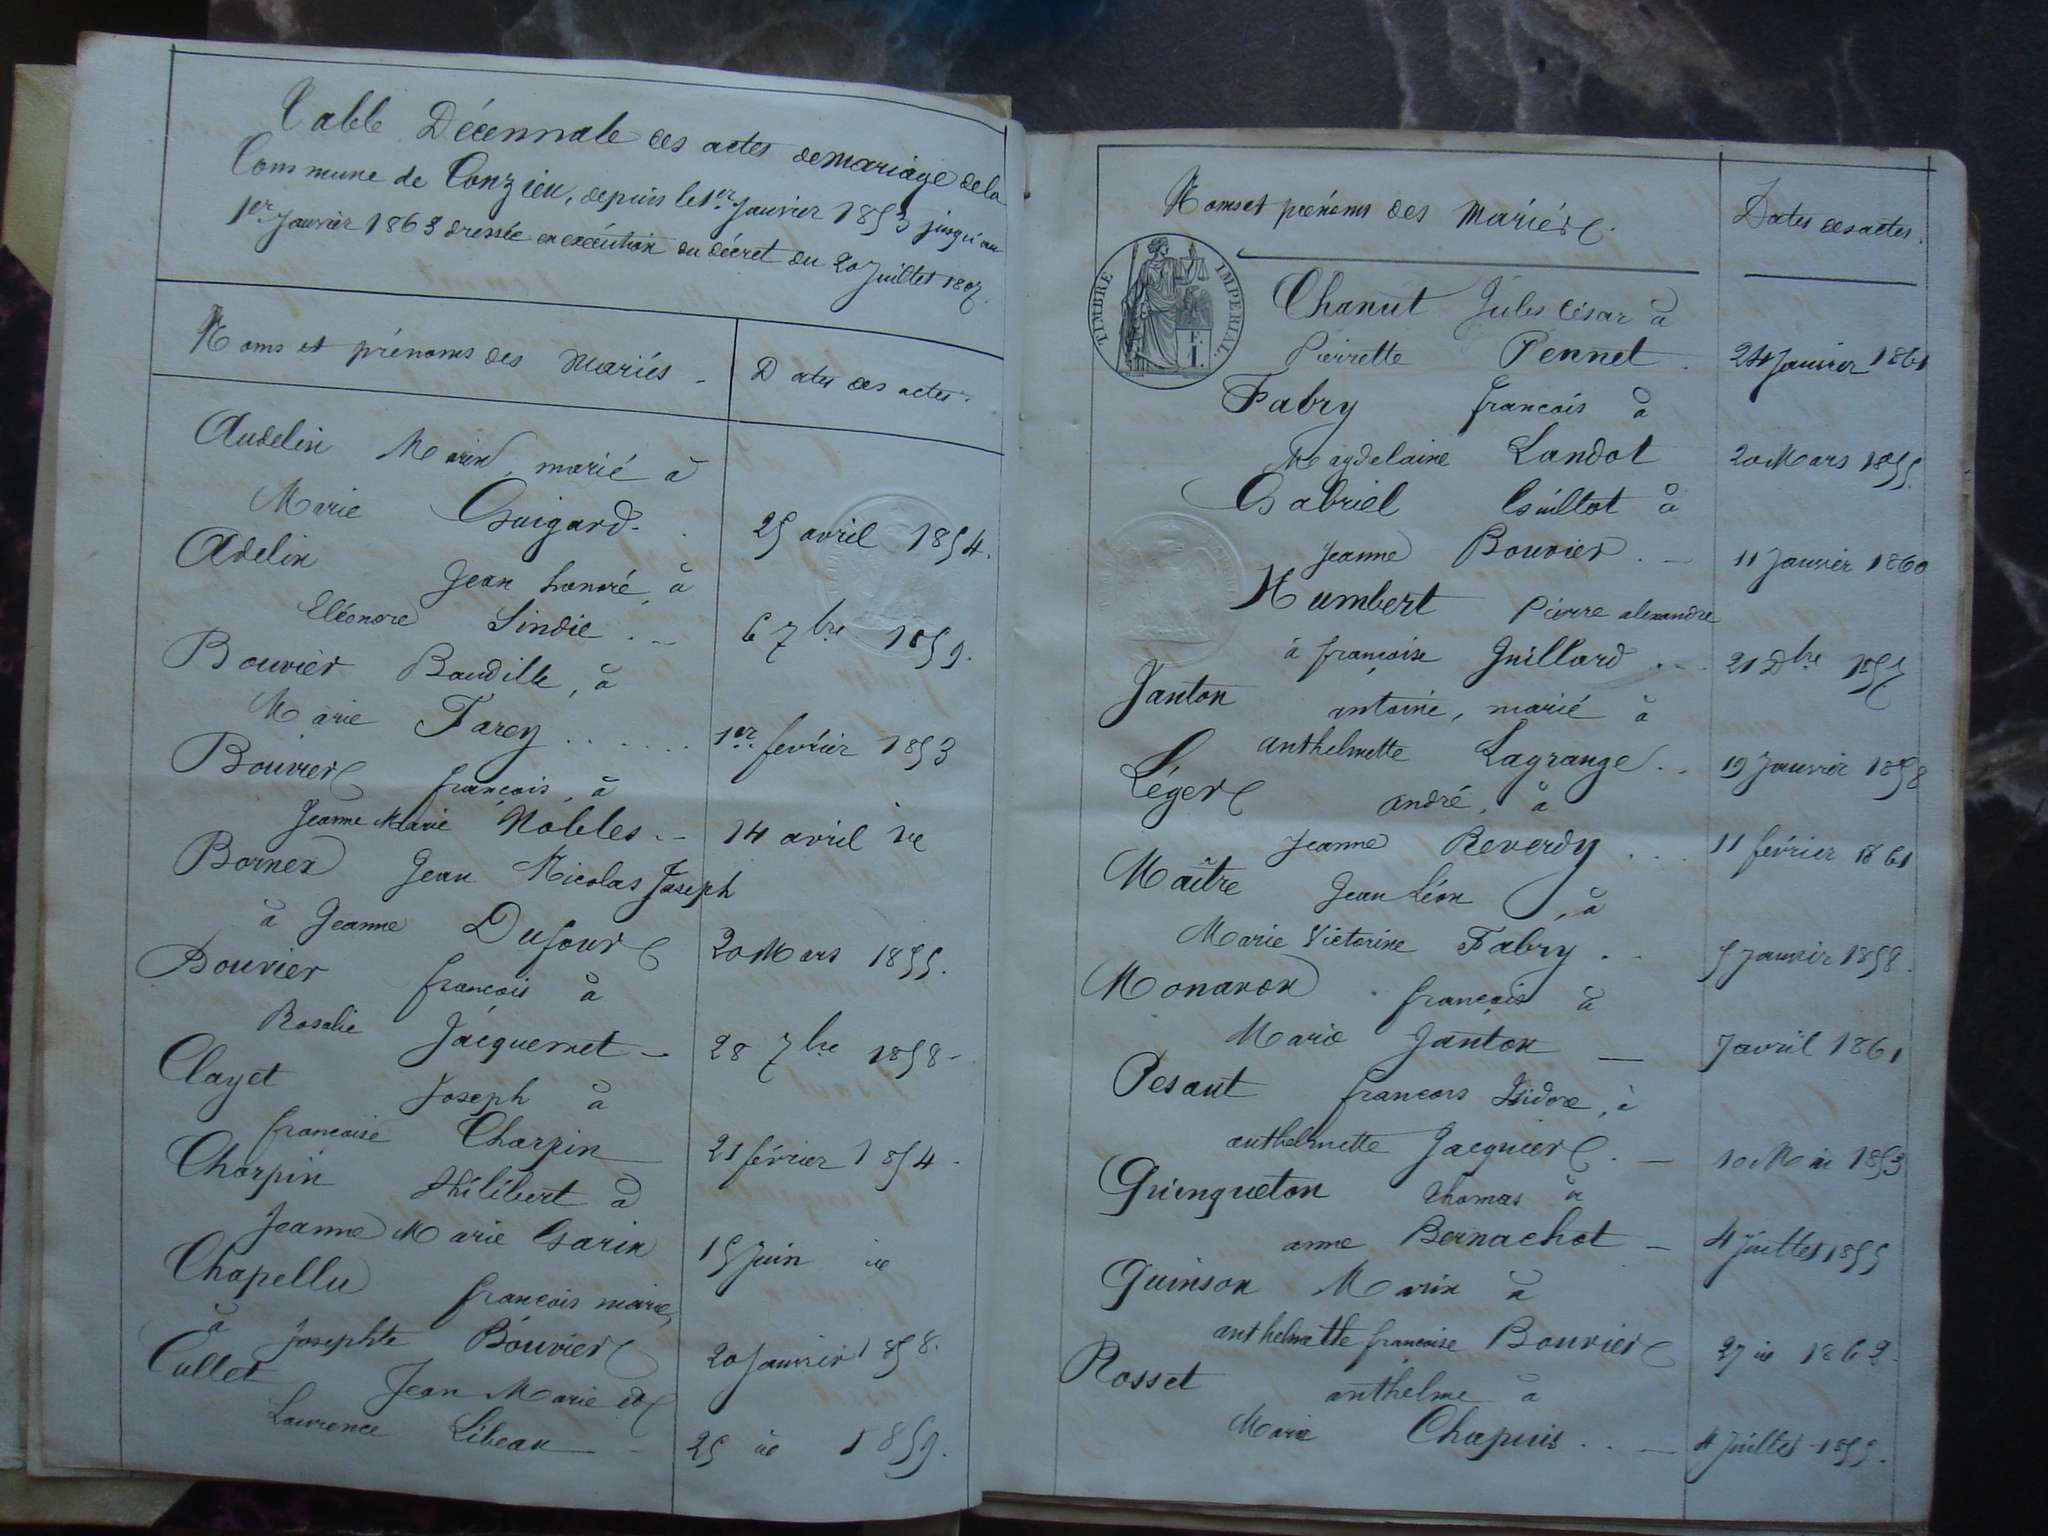 Table Décennale des actes de mariage de la
Commune de Conzieu, depuis le 1er Janvier 1853 jusqu'au
1er Janvier 1863 dressée en exécution du décret du 20 Juillet 1807.
Noms et prénoms des Mariés
Dates des actes.
Audelin Marin, marié à
Marie Guigard. 25 avril 1854.
Adelin Jean honoré, à
Eléonore Sindie . – 6 7bre 1859.
Bouvier Baudille, à
Marie Farey ...... 1er fevrier 1853
Bouvier françois, à
Jeanne Marie Nobles. – 14 avril
Borner Jean Nicolas Joseph
à Jeanne Dufour 20 Mars 1855.
Bouvier francois à
Rosalie Jacquemet – 28 7bre 1858 –
Clayet Joseph à
francoise Charpin 21 février 1854 –
Charpin Philibert à
Jeanne Marie Garin 15 Juin
Chapellu francois marie,
à Josephte Bouvier 20 Janvier 1858.
Cullet Jean Marie et
Laurence Libeau – 25 1859.
Noms et prénoms des Mariés.
Dates des actes.
TIMBRE IMPERIAL.
Chanut Jules César à
Pierrette Pennet . 24 Janvier 1861
Fabry francois à
Magdelaine Landot 20 Mars 1855.
Gabriel Guillot à
Jeanne Bouvier . – 11 Janvier 1860
Humbert Pierre alexandre
à françoise Guillard . – 21 Dbre
Janton antoine, marié à
anthelmette Lagrange. . 19 Janvier 1858
Léger andré, à
Jeanne Reverdy ... 11 février 1861
Maître Jean Léon, à
Marie Victorine Fabry . . 5 Janvier 1858.
Monavon françois à
Marie Janton – 7 avril 1861
Pesant francois Isidore, à
anthelmette Jacquier. – 10 Mai 1853
Quinqueton thomas à
anne Bernachot – 4 Juillet 1855
Quinson Marin à
anthelmette françoise Bouvier 27 1862.
Rosset anthelme à
Marie Chapuis . . – 4 Juillet 1855.